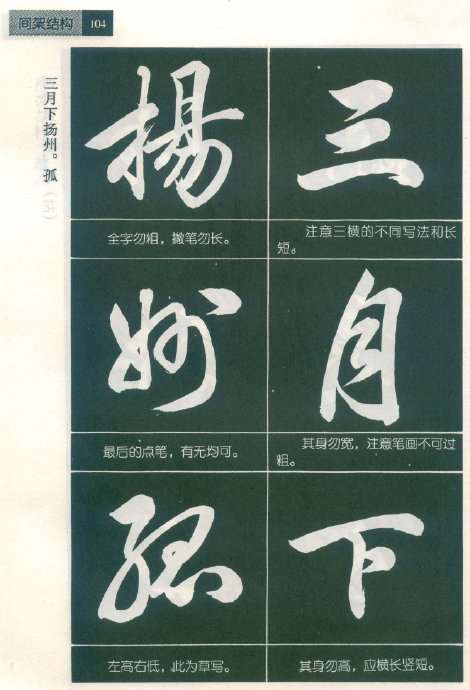 间架结构 104
三月下扬州。孤
三
注意三横的不同写法和长
短。
月
其身勿宽，注意笔画不可过
粗。
下
其身勿高，应横长竖短。
揚
全字勿粗，撇笔勿长。
州
最后的点笔，有无均可。
孤
左高右低，此为草写。